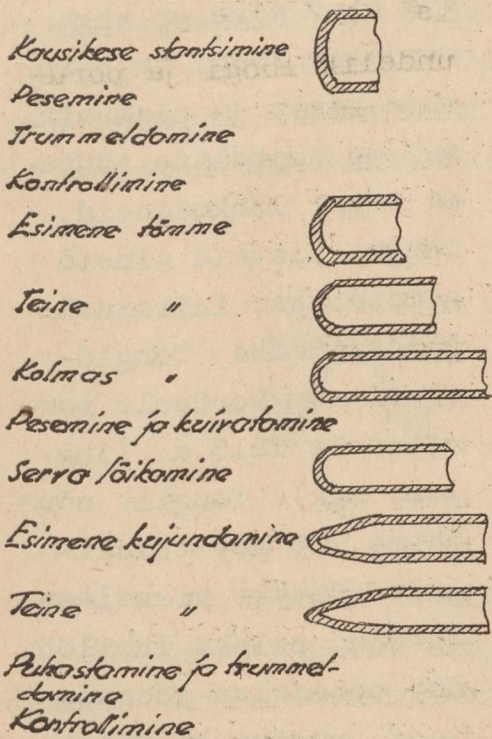 Kausikese stantsimine
Pesemine
Trummeldamine
Kontrollimine
Esimene tõmme
Teine "
Kolmas "
Pesemine ja kuivatamine
Serva lõikamine
Esimene kujundamine
Teine "
Puhastamine ja trummel-
damine
Kontrollimine